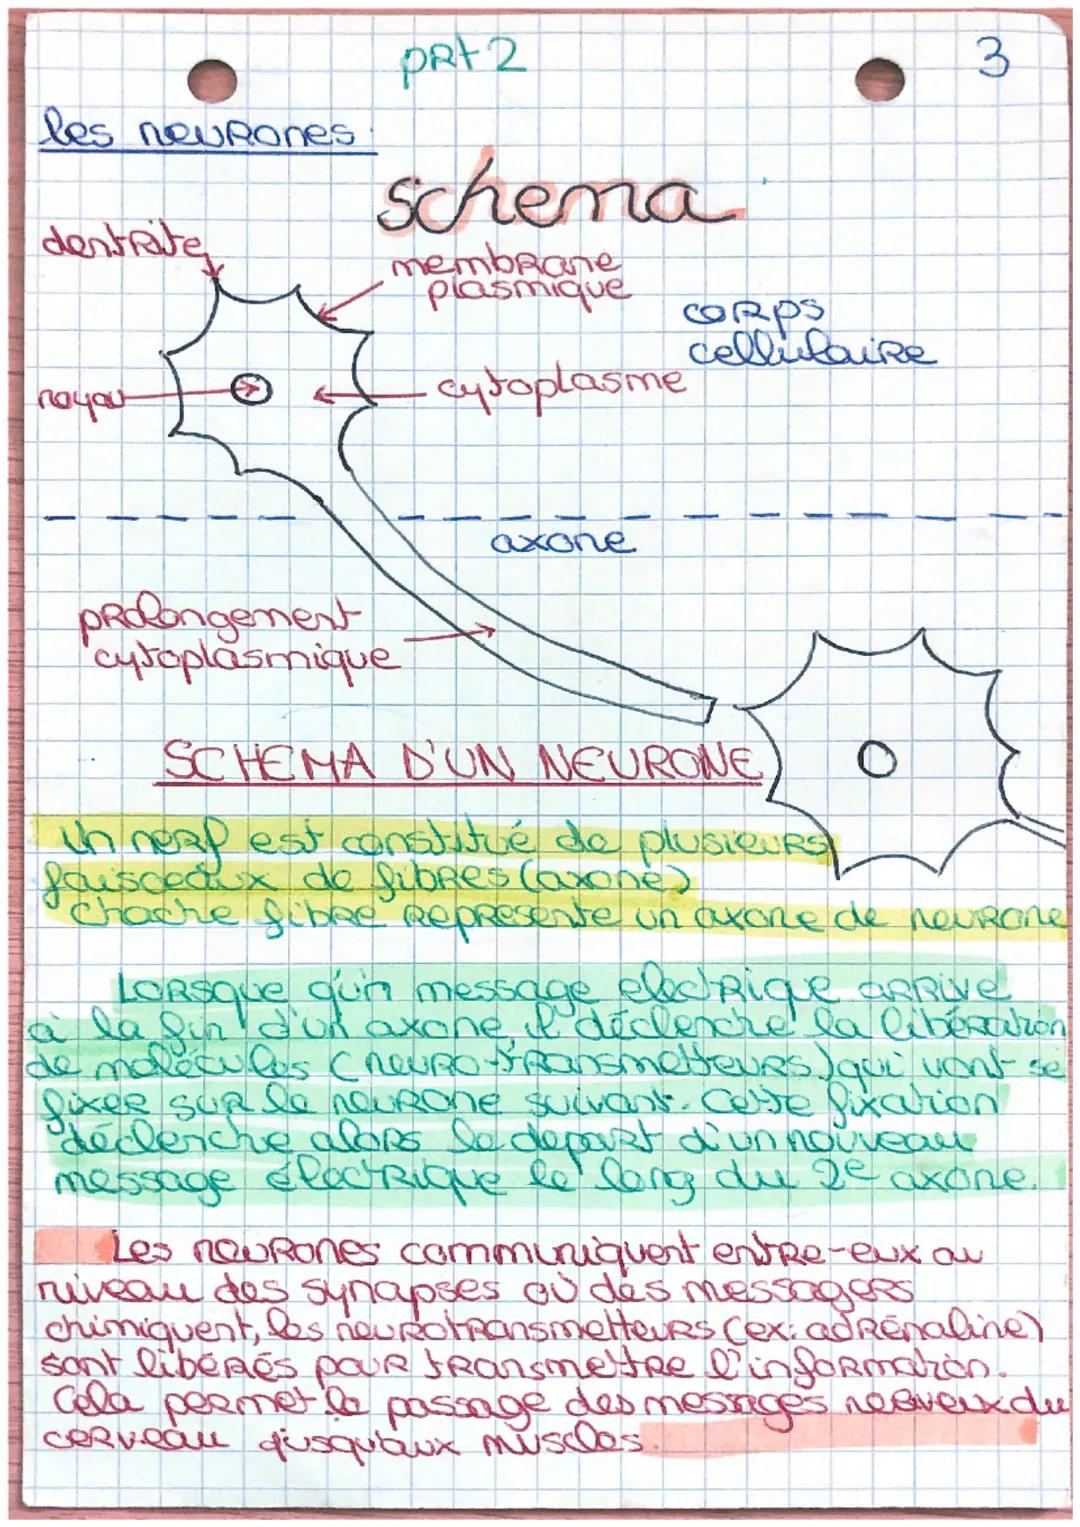 prt 2
3
les neurones
schema
dentrite
membrane
plasmique
corps
cellulaire
noyau
cytoplasme
axone
prolongement
cytoplasmique
SCHEMA D'UN NEURONE
Un nerf est constitué de plusieurs
faisceaux de fibres (axone)
Chache fibre représente un axone de neurone
Lorsque qu'un message electrique arrive
à la fin d'un axone il déclenche la libération
de molécules (neuro-transmetteurs) qui vont se
fixer sur le neurone suivant. Cette fixation
déclenche alors le depart d'un nouveau
message électrique le long du 2e axone.
Les neurones communiquent entre-eux au
niveau des synapses où des messagers
chimiquent, les neurotransmetteurs (ex: adrénaline)
sont libérés pour transmettre l'information.
Cela permet le passage des messages nerveux du
cerveau jusqu'aux muscles.